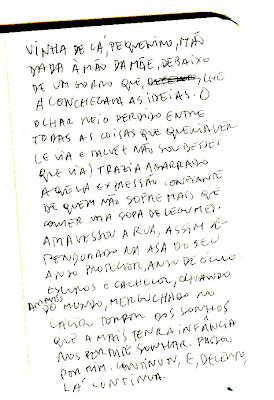 VINHA DE LÁ, PEQUENINO, MÃO
DADA À MÃO DA MÃE, DEBAIXO
DE UM GORRO QUE, LHE
ACONCHEGAVA AS IDEIAS. O
OLHAR MEIO PERDIDO ENTRE
TODAS AS COISAS QUE QUERIA VER
(E VIA E TALVEZ NÃO SOUBESSE
QUE VIA) TRAZIA AGARRADO
AQUELA EXPRESSÃO CONFIANTE
DE QUEM NÃO SOFRE MAIS QUE
COMER UMA SOPA DE LEGUMES.
ATRAVESSOU A RUA, ASSIM DE
PENDURADO NA ASA DO SEU
ANJO PROTECTOR, ANJO DE ÓCULOS
ESCUROS E CACHECOL, OLHANDO
O MUNDO, MERGULHADO NO
CALOR DOS SONHOS
QUE A MAIS TENRA INFÂNCIA
NOS PERMITE SONHAR. PASSOU
POR MIM. CONTINUOU, E, DECERTO,
LÁ CONTINUA.